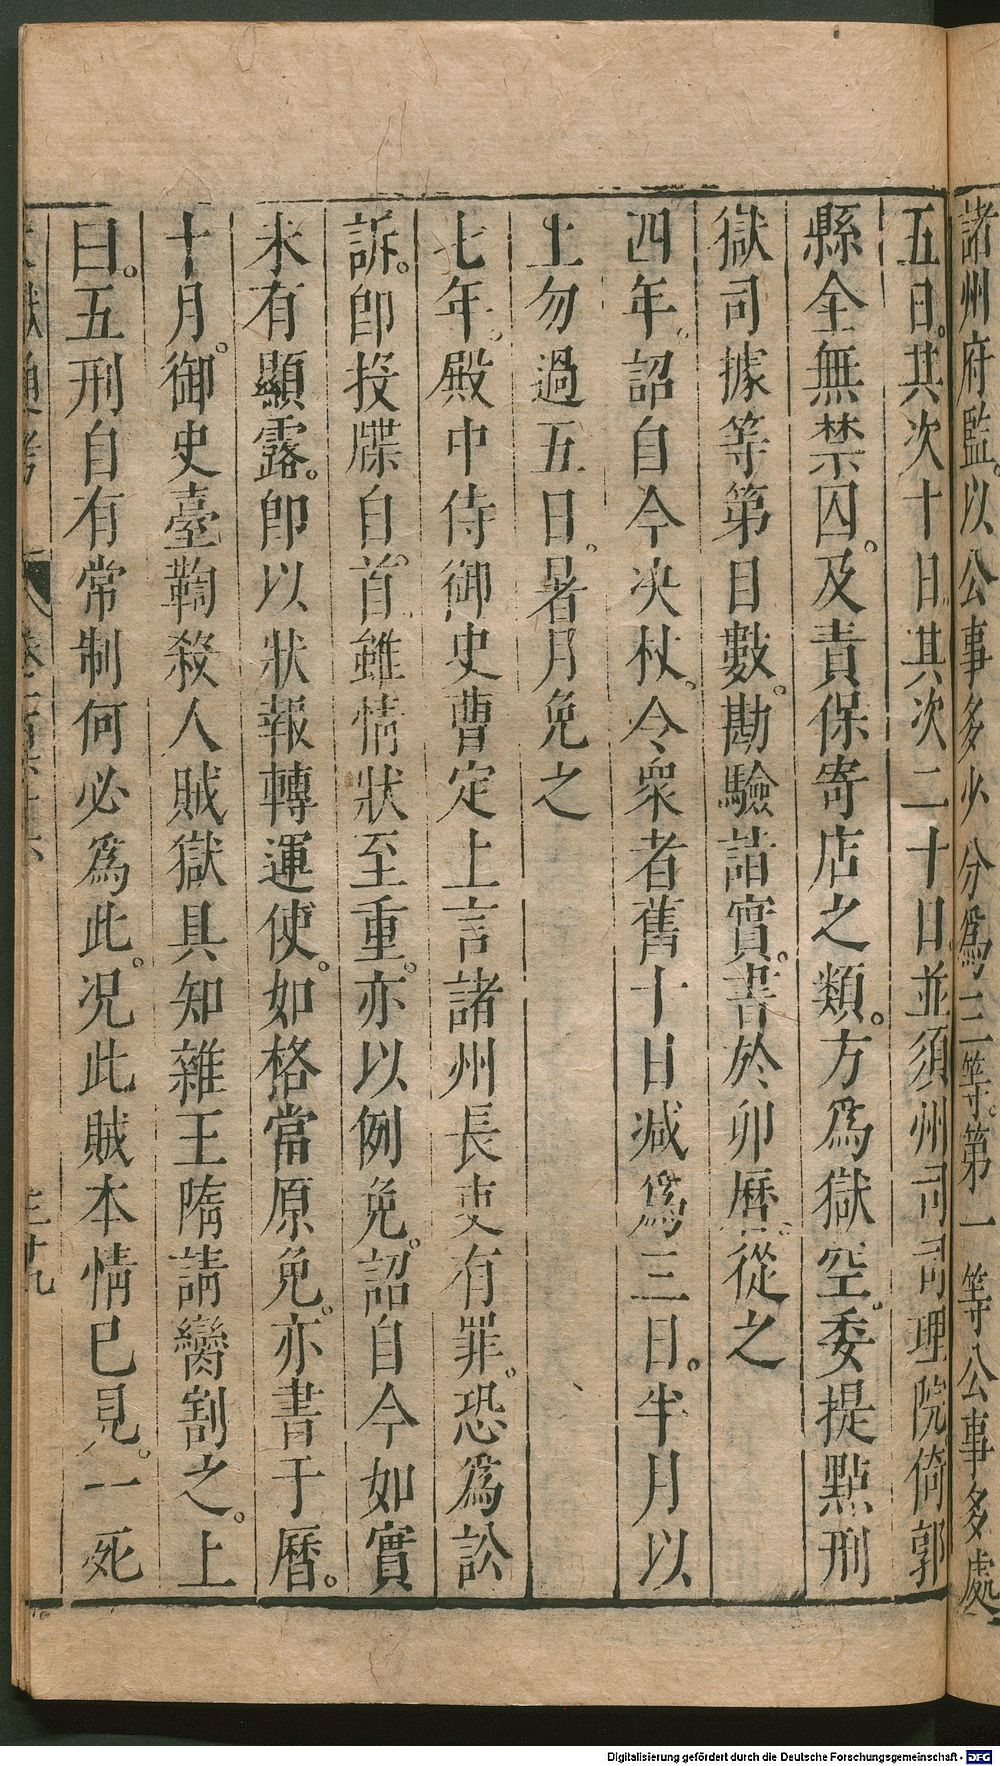 諸州府監。以公事多少分爲三等。第一等公事多處
五日。其次十日其次二十日並須州司司理院倚郭
縣全無禁囚。及責保寄店之類。方爲獄空。委提點刑
獄司據等第目數。勘驗諸實。書於卯曆。從之
四年。詔自今决杖。令衆者舊十日减爲三日。半月以
上勿過五日。暑月免之
七年。殿中侍御史曹定上言諸州長吏有罪。恐爲訟
訴。卽投牒自首。雖情狀至重。亦以例免。詔自今如實
未有顯露。卽以狀報轉運使。如格當原免。亦書于曆。
十月。御史臺鞫殺人賊獄具知雜王隋請臠割之。上
曰。五刑自有常制何必爲此。况此賊本情已見。一死
文獻通考 卷一百六十六 三十九
Digitalisierung gefördert durch die Deutsche Forschungsgemeinschaft - DFG